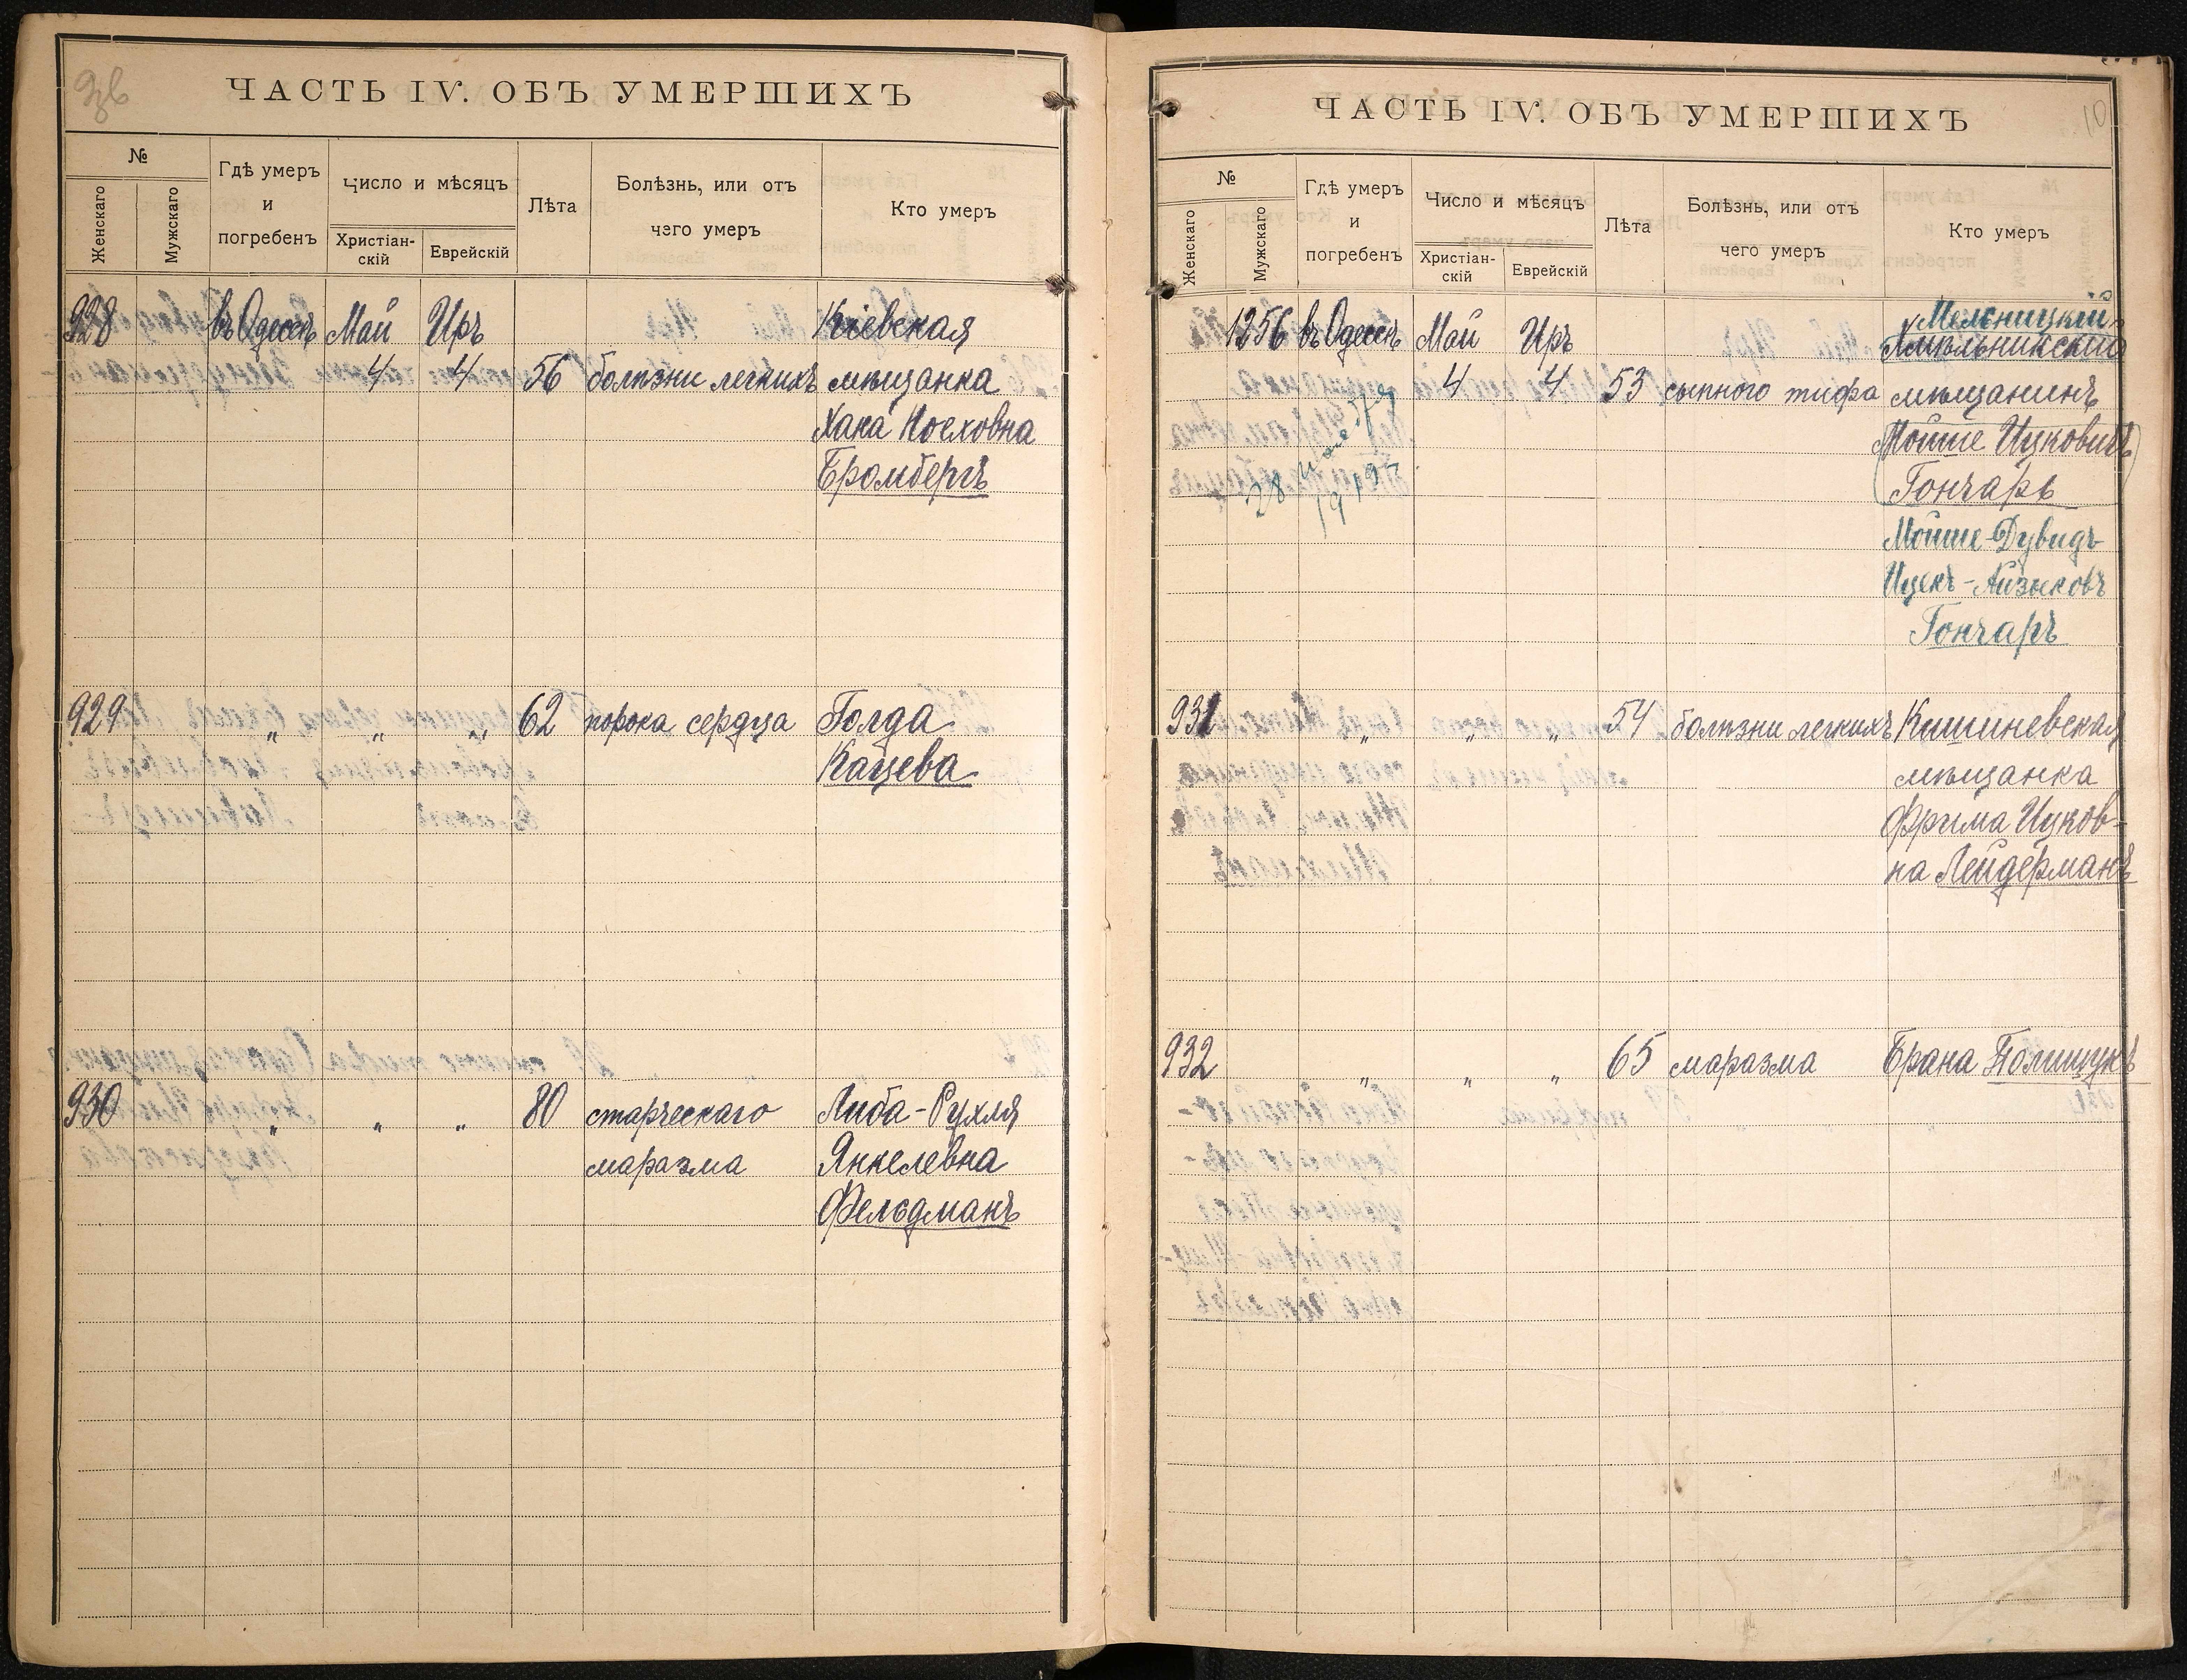 ЧАСТЬ IV. ОБЪ УМЕРШИХЪ
№
Женскаго
Мужскаго
Гдѣ умеръ
и
погребенъ
Число и мѣсяцъ
Христіан-
скій
Еврейскій
Лѣта
Болѣзнь, или отъ
чего умеръ
Кто умеръ
928 въ Одессѣ Май Иръ Кіевская
4 4 56 болѣзни легкихъ мѣщанка
Хана Иосховна
Бромбергъ
929 „ „ „ 62 порока сердца Голда
Кацева
930 „ „ „ 80 старческаго Либа-Рухля
маразма Янкелевна
Фельдманъ
ЧАСТЬ IV. ОБЪ УМЕРШИХЪ
10
№
Женскаго
Мужскаго
Гдѣ умеръ
и
погребенъ
Число и мѣсяцъ
Христіан-
скій
Еврейскій
Лѣта
Болѣзнь, или отъ
чего умеръ
Кто умеръ
Мельницкій
1256 въ Одессѣ Май Иръ Хмѣльникскій
4 4 53 сыпного тифа мѣщанинъ
(Мойше Ицковичъ
Гончаръ)
28
19
Мойше-Дувидъ
Ицекъ-Айзыковъ
Гончаръ
931 „ „ „ 54 болѣзни легкихъ Кишиневская
мѣщанка
Фрима Ицков-
на Лейдерманъ
932 „ „ „ 65 маразма Брана Полищукъ